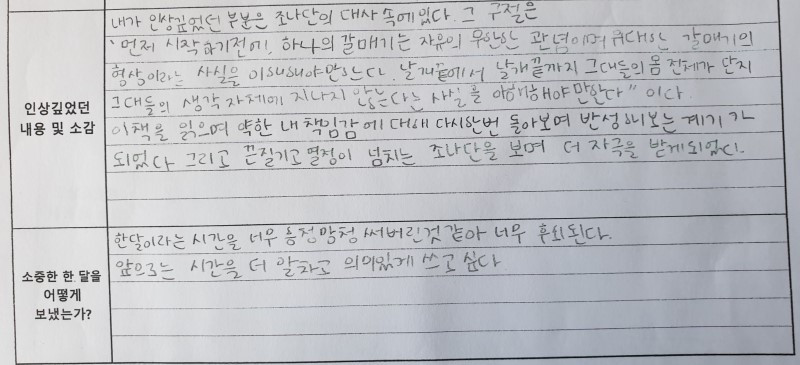 내가 인상깊었던 부분은 조나단의 대사 속에 있다. 그 구절은
'먼저 시작하기전에, 하나의 갈매기는 자유의 무한한 관념이며 위대한 갈매기의
형상이라는 사실을 이해해야만한다. 날개끝에서 날개끝까지 그대들의 몸 전체가 단지
인상깊었던
내용 및 소감
그대들의 생각 자체에 지나지 않는다는 사실을 이해해야만한다" 이다.
이책을 읽으며 약한 내 책임감에 대해 다시한번 돌아보며 반성해보는 계기가
되었다 그리고 끈질기고 열정이 넘치는 조나단을 보며 더 자극을 받게되었다.
한달이라는 시간을 너무 흥청망청 써버린것 같아 너무 후회된다.
앞으로는 시간을 더 알차고 의미있게 쓰고 싶다
소중한 한 달을
어떻게
보냈는가?